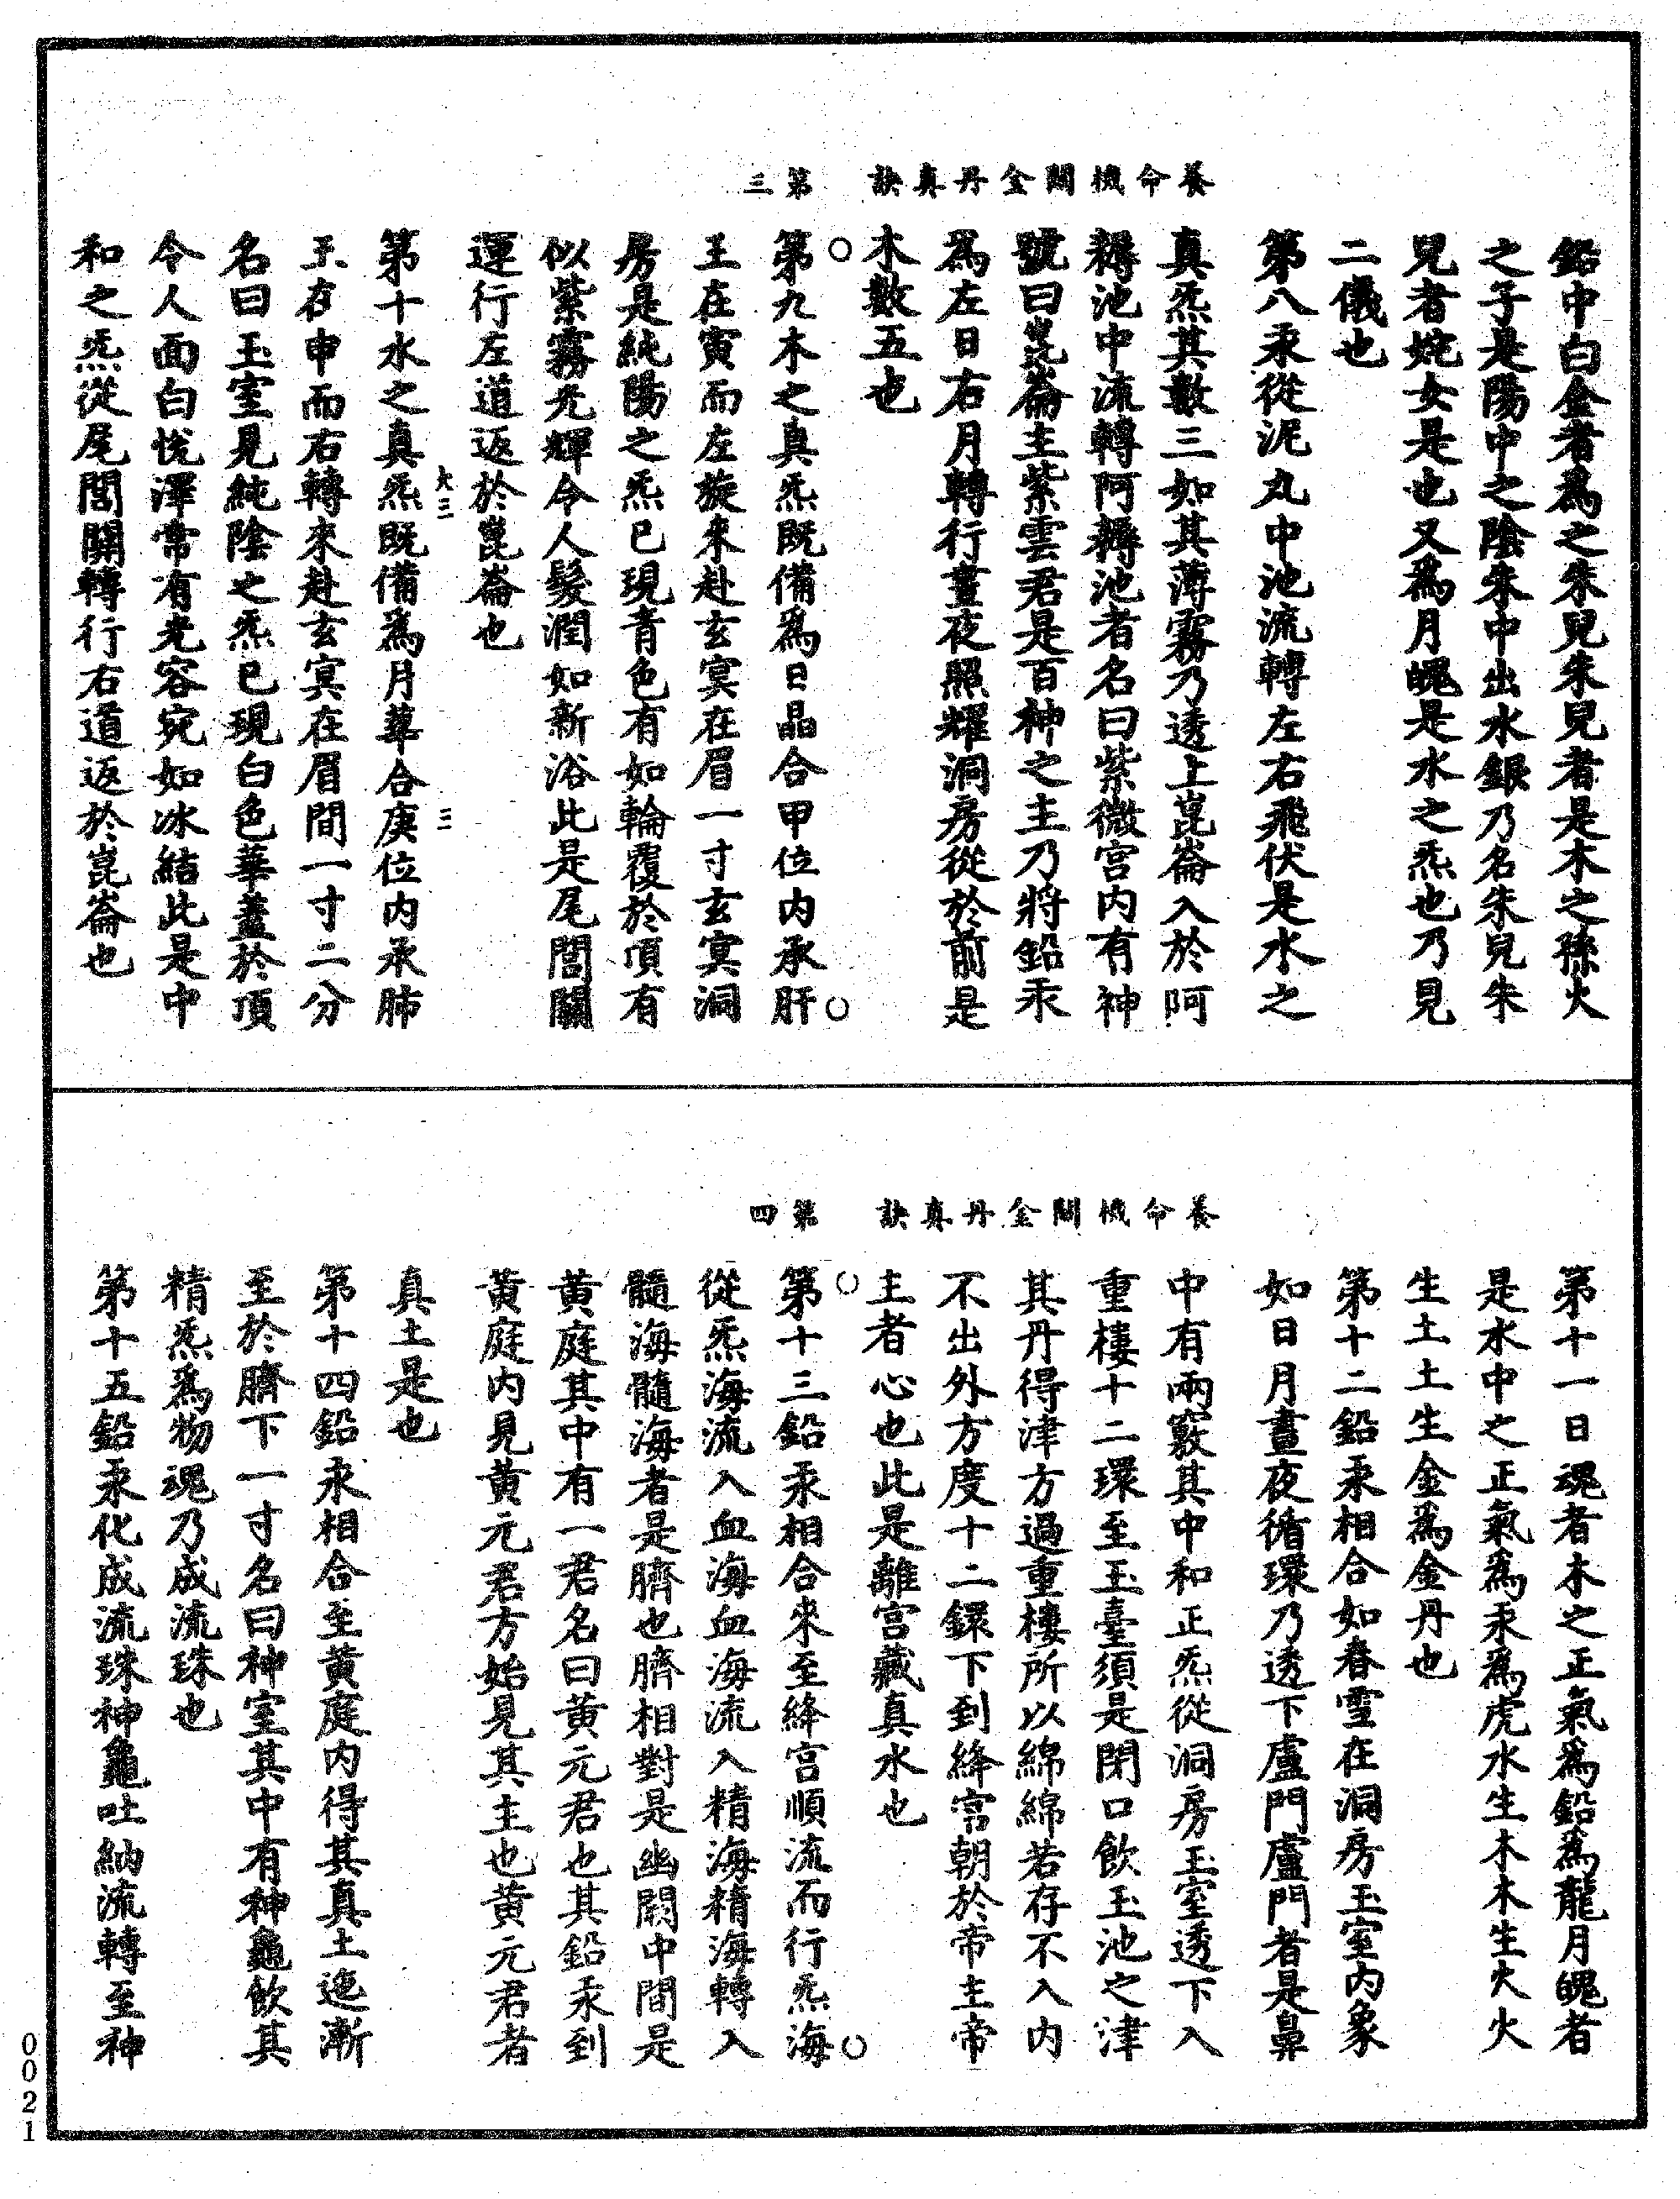 養命機關金丹真訣　第三
鉛中白金者爲之朱兒朱兒者是木之孫火
之子是陽中之陰朱中出水銀乃名朱兒朱
兒者姹女是也又爲月魄是水之炁也乃見
二儀也
第八汞從泥丸中池流轉左右飛伏是水之
真炁其數三如其薄霧乃透上崑崙入於阿
耨池中流轉阿耨池者名曰紫微宫内有神
號曰崑崙主紫雲君是百神之主乃將鉛汞
爲左日右月轉行晝夜照耀洞房從於前是
木數五也
第九木之真炁既備爲日晶合甲位内承肝
王在寅而左旋來赴玄冥在眉一寸玄冥洞
房是純陽之炁已現青色有如輪覆於頂有
似紫霧光輝令人髮潤如新浴此是尾閭關
運行左道返於崑崙也
大三　三
第十水之真炁既備爲月華合庚位内承肺
王在申而右轉來赴玄冥在眉間一寸二分
名曰玉室見純陰之炁已現白色華蓋於頂
令人面白悅澤常有光容宛如冰結此是中
和之炁從尾閭關轉行右道返於崑崙也
養命機關金丹真訣　第四
第十一日魂者木之正氣爲鉛爲龍月魄者
是水中之正氣爲汞爲虎水生木木生火火
生土土生金爲金丹也
第十二鉛汞相合如春雪在洞房玉室内象
如日月晝夜循環乃透下盧門盧門者是鼻
中有兩竅其中和正炁從洞房玉室透下入
重樓十二環至玉臺須是閉口飲玉池之津
其丹得津方過重樓所以綿綿若存不入内
不出外方度十二鐶下到絳宫朝於帝主帝
主者心也此是離宫藏真水也
第十三鉛汞相合來至絳宫順流而行炁海
從炁海流入血海血海流入精海精海轉入
髓海髓海者是臍也臍相對是幽闕中間是
黄庭其中有一君名曰黄元君也其鉛汞到
黄庭内見黄元君方始見其主也黄元君者
真土是也
第十四鉛汞相合至黄庭内得其真土迤漸
至於臍下一寸名曰神室其中有神龜飲其
精炁爲物魂乃成流珠也
第十五鉛汞化成流珠神龜吐納流轉至神
0021